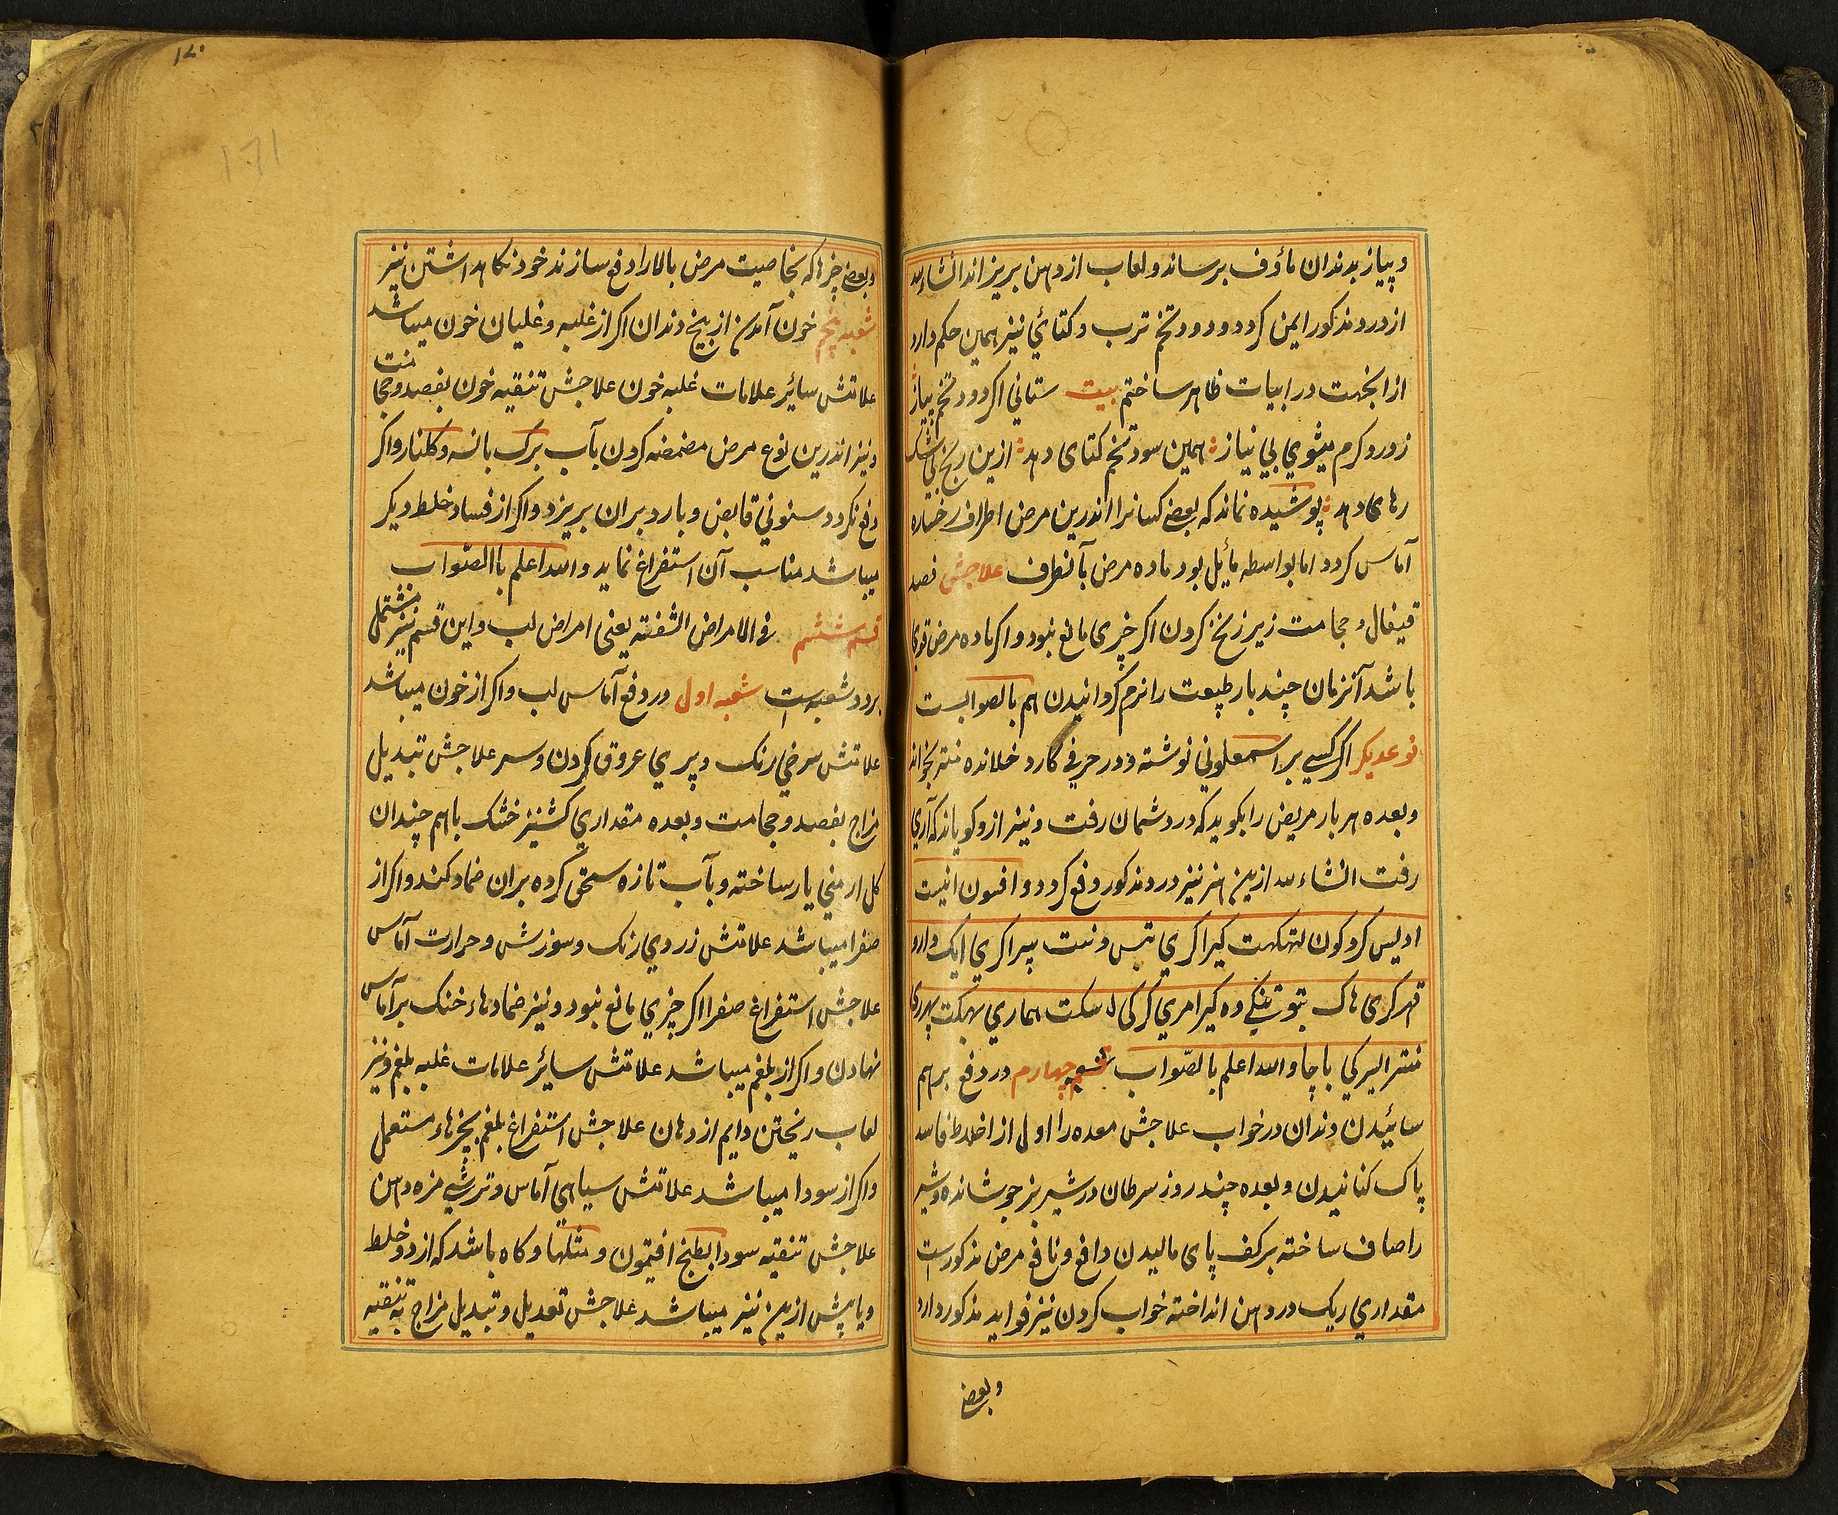 و پیاز بدندان ماؤف برساند و لعاب از دهن بریزاند انشاءالله
از درد مذکور ایمن کردد و دود تخم ترب و کتائي نیز همین حکم دارد
ازانجهت در ابیات ظاهر ساختم بیت ستاني اکر دود تخم پیاز
ز درد کرم میشوي بي نیاز همین سود تخم کتای دهد ازین رنج بي شک
رهای دهد پوشیده نماند که بعضے کسانرا اندرین مرض اطراف رخساره
آماس کردد اما بواسطه مائیل بود ماده مرض بآنطرف علاجش فصد
قیفال و حجامت زیر زنخ کردن اکر چیزی مانع نبود و اکر ماده مرض قوي
باشد آنزمان چند بار طبیعت را نرم کردانیدن هم بالصوابست
نوعدیکر اکر کسي بر اسمعلوني نوشته و در حرفي کارد خلانده منتر بخواند
و بعده هر بار مریض را بکوید که درد شمان رفت و نیز ازو کویاند که آري
رفت انشاءلله ازین هنر نیز درد مذکور دفع کردد و افسون اینست
ادیس کرو کون کیرا کري بتس دنت پیرا کري ایک دارد
قهر کری هاک وه کیرا مري کرکی سکت هماري بهکت پهروی
منتر الیرکي باچا والله اعلم بالصّواب شعبه چهارم در دفع برهم
سائیدن دندان در خواب علاجش معده را اول از اخلاط فاسد
پاک کنانیدن و بعده چند روز سرطان در شیر بز جوشانده و شیر
را صاف ساخته بر کف پای مالیدن دافع و نافع مرض مذکورست
مقداري ریک در دهن انداخته خواب کردن نیز فواید مذکور دارد
و بعضے
١٧٠
171
و بعضے چیزها که بخاصیت مرض بالا را دفع سازند خود نکاهداشتن نیز
شعبه پنجم خون آمدن از بیخ دندان اکر از غلبه و غلیان خون میباشد
علامتش سائیر علامات غلبه خون علاجش تنقیه خون بفصد و حجامت
و نیز اندرین نوع مرض مضمضه کردن بآب برک بانسه و کلنار و اکر
دفع نکردد سنوني قابض و بارد بران بریزد و اکر از فساد خلط دیکر
میباشد مناسب آن استفراغ نماید والله اعلم باالصّواب
قسم ششم في الامراض الشفته یعنی امراض لب و این قسم نیز مشتمل
بر دو شعبه است شعبه اول در دفع آماس لب و اکر از خون میباشد
علامتش سرخي رنک و پري عروق کردن و سر علاجش تبدیل
مزاج بفصد و حجامت و بعده مقداري کشنیز خشک باهم چندان
کل ارمني یار ساخته و بآب تازه سحق کرده بران ضماد کند و اکر از
صفرا میباشد علامتش زردي رنک و سوزش و حرارت آماس
علاجش استفراغ صفرا اکر چیزي مانع نبود و نیز ضمادهاء خنک بر آماس
نهادن و اکر از بلغم میباشد علامتش سایر علامات غلبه بلغم و نیز
لعاب ریختن دایم از دهان علاجش استفراغ بلغم بچیزهاء مستعمل
و اکر از سودا میباشد علامتش سیاهی آماس و ترشي مزه دهن
علاجش تنقیه سودا بطبخ افیتمون و مثلها و کاه باشد که از دو خلط
و یا بیش ازین نیز میباشد علاجش تعدیل و تبدیل مزاج به تنقیه